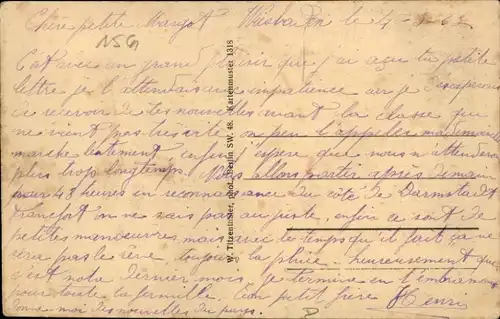 Chère petite Margot Wiesbaden le 4-
NSG
C'est avec un grand plaisir que j'ai reçu ta petite
lettre je l'attendais avec impatience car je désespérais
de recevoir de tes nouvelles avant la classe qui
ne vient pas très vite on peut l'appeler mademoiselle
marche lentement enfin j'espère que nous n'attendrons
plus trop longtemps. Nous allons partir après demain
pour 48 heures en reconnaissance du côté de Darmstadt
Francfort on ne sais pas au juste, enfin ce sont de
petites manoeuvres mais avec le temps qu'il fait ça ne
sera pas le rêve toujours la pluie heureusement que
c'est notre dernier mois je termine en t'embrassant
pour toute la famille. Ton petit frère Henri
Donne moi des nouvelles du pays.
W. Titzenthaler, phot. Berlin SW. 48. Kartenmuster 1318